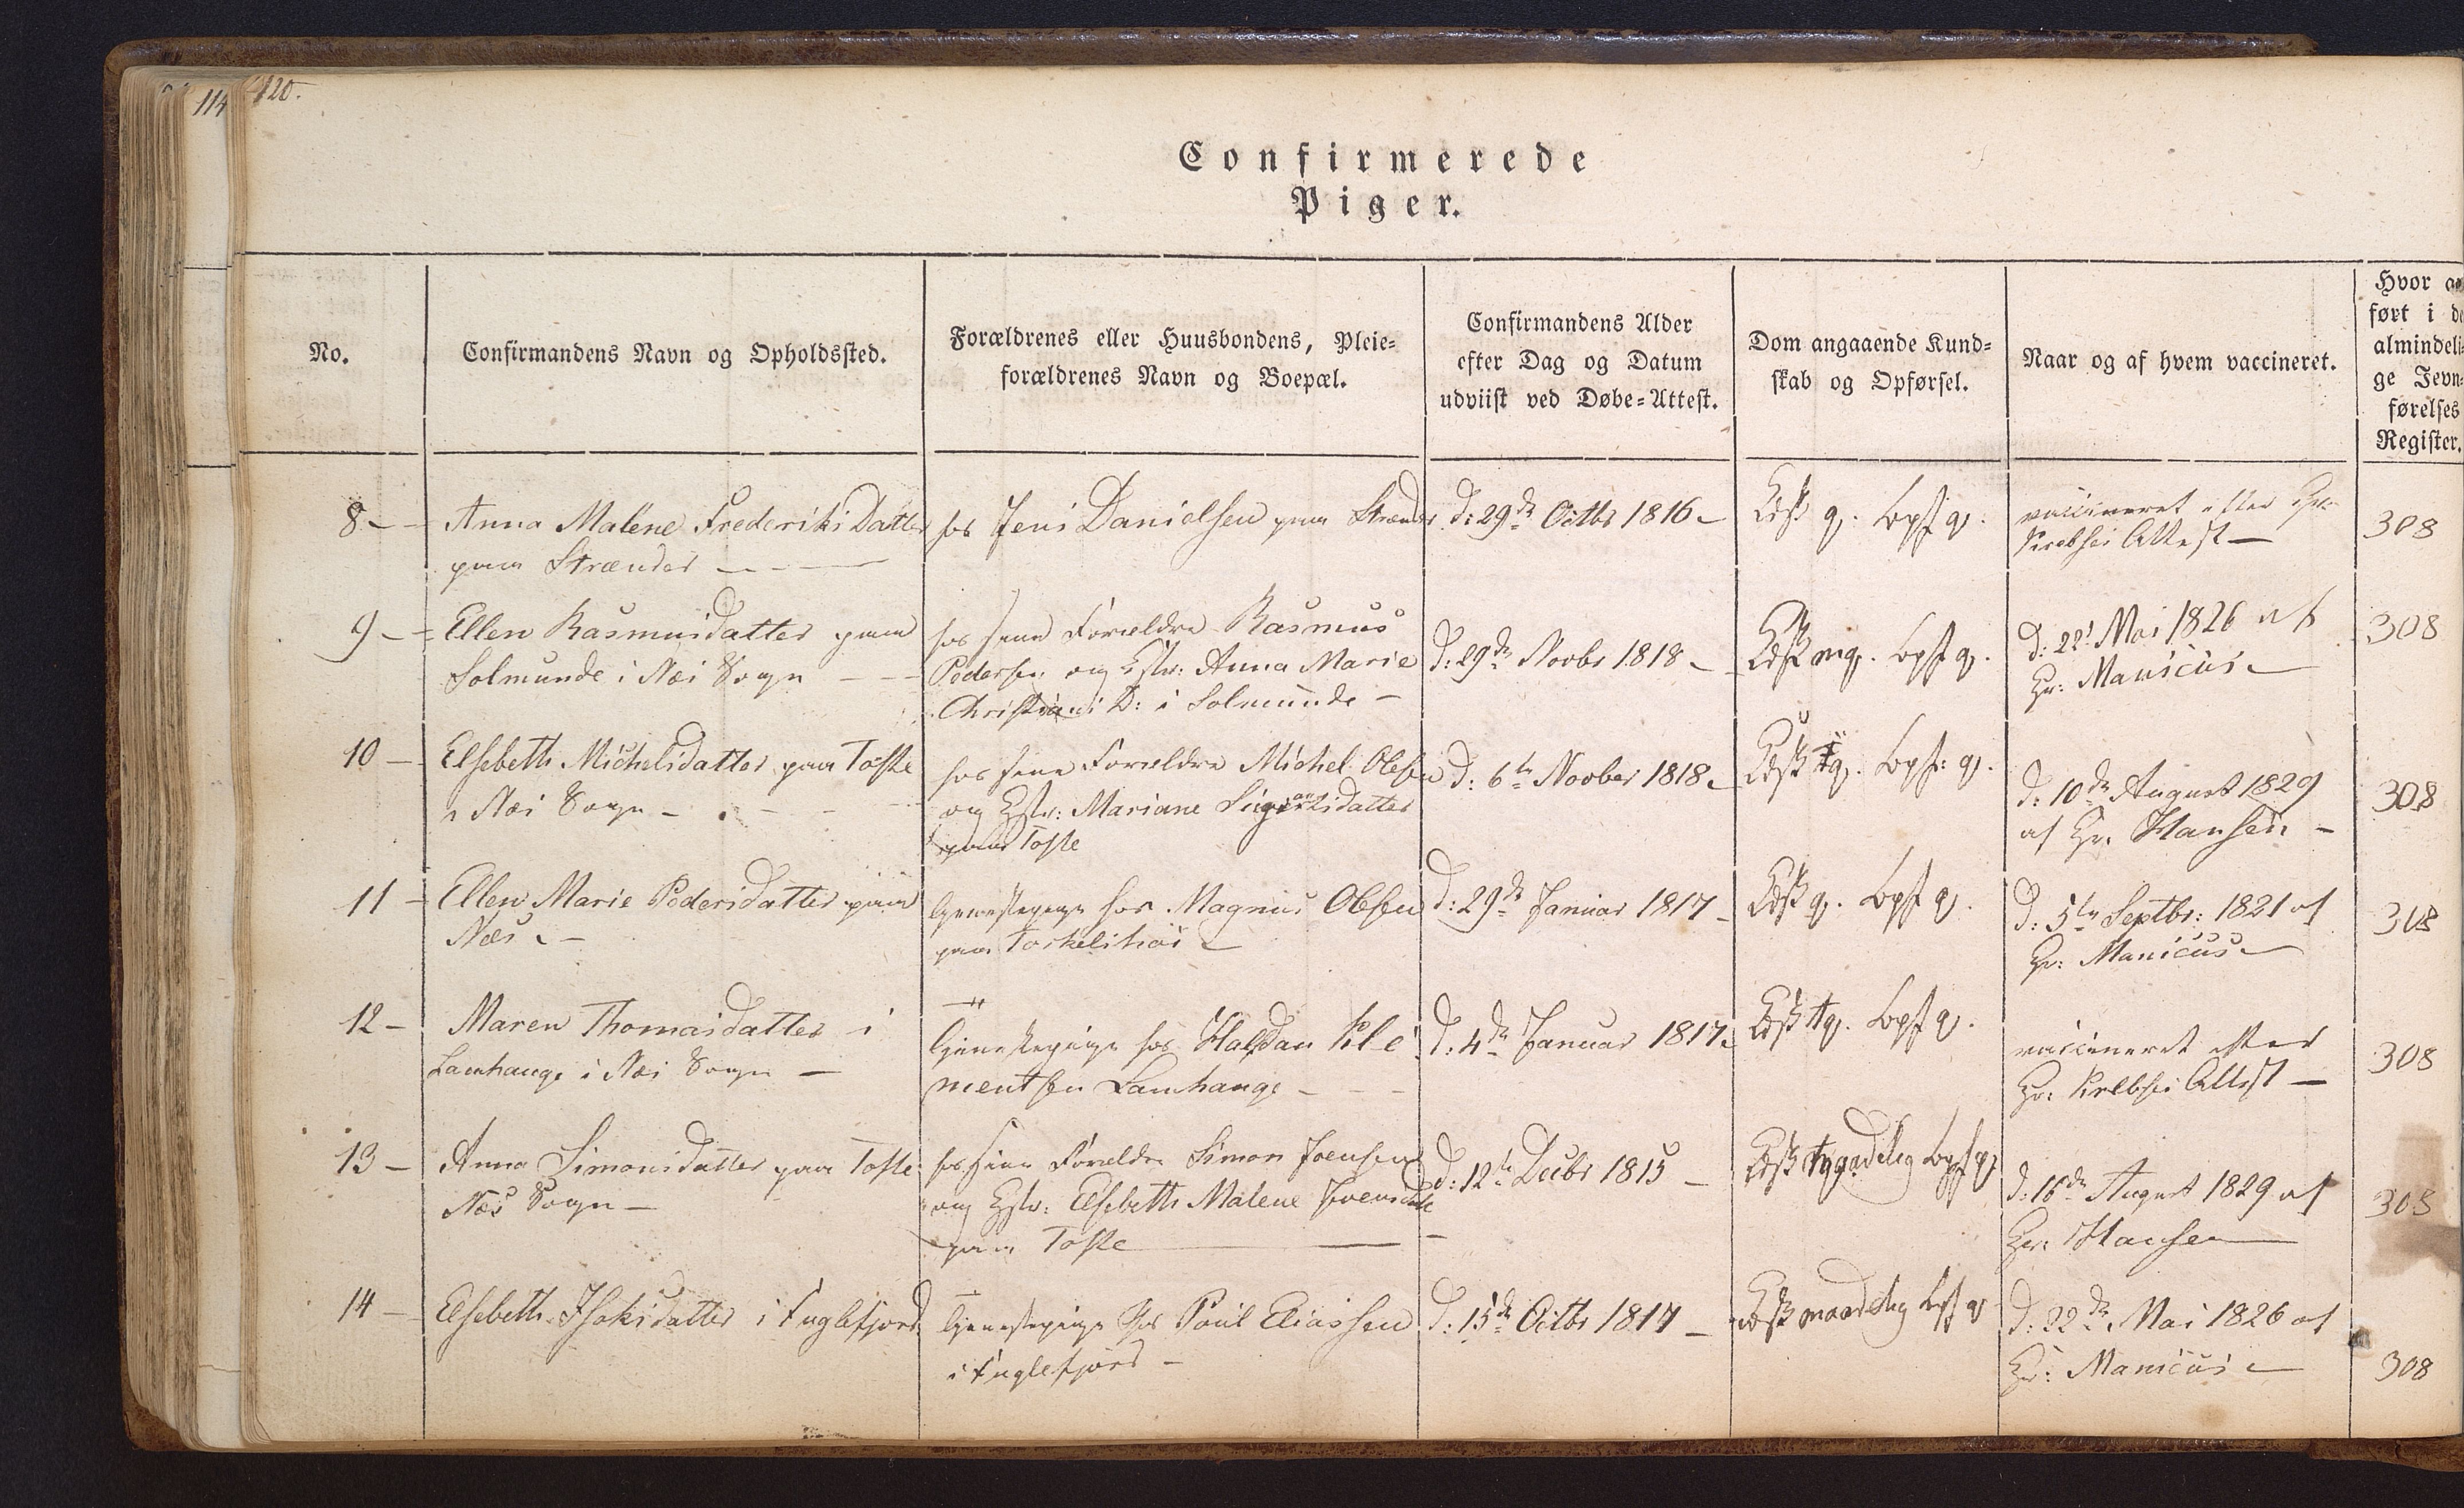 114
120.
Confirmerede
Piger.
No.
Confirmandens Navn og Opholdssted.
Forældrenes eller Huusbondens, Pleie=
forældrenes Navn og Boepæl.
Confirmandens Alder
efter Dag og Datum
udviist ved Døbe=Attest.
Dom angaaende Kund=
skab og Opførsel.
Naar og af hvem vaccineret.
Hvor
ført i
almindeli=
ge Jevn=
førelses
Register.
8 - Anna Malene Frederiks Datter
paa Strænder
hos Jens Danielsen paa Strænder
d: 29de Octbr 1816 -
Kdsk g. Opf g.
vaccineret efter Hr:
Krebses Attest -
308
9 - Ellen Rasmusdatter paa
Solmunde i Næs Sogn
hos sine Forældre Rasmus
Pedersen og Hstr: Anna Marie
Christians D: i Solmunde -
d: 29de Novbr 1818 -
Kdsk mg. Opf g.
d: 22d Mai 1826 af
Hr: Manicus -
308
10 - Elsebeth Michelsdatter paa Tofte
i Næs Sogn -
hos sine Forældre Michel Olesen
og Hstr: Mariane datter
paa Tofte
d: 6te Novber 1818 -
Kdsk tg. Opf: g.
d: 10de August 1829
af Hr. Hansen -
308
11 - Ellen Marie Pedersdatter paa
Næs -
tjenestepige hos Magnus Olesen
paa
d: 29de Januar 1817 -
Kdsk g. Opf g.
d: 5te Septbr: 1821 af
Hr: Manicus -
308
12 - Maren Thomasdatter i
Lamhauge i Næs Sogn -
tjenestepige hos Haldan Kle
mentsen Lamhauge -
d: 4de Januar 1817 -
Kdsk tg. Opf g.
vaccineret efter
Hr: Krebses Attest -
308
13 - Anna Simonsdatter paa Tofte
Næs Sogn -
hos sine Forældre Simon Joensen
og Hstr: Elsebeth Malene
paa Tofte -
d: 12te Decbr 1815 -
Kdsk tg Opf g
d: 16de August 1829 af
Hr: Hansen
308
14 - Elsebeth Isaksdatter i Fuglefjord
tjenestepige hos Poul Eliassen
i Fuglefjord -
d: 15de Octbr 1817 -
Kdsk maadelig Opf g
d: 22de Mai 1826 af
Hr: Manicus -
308